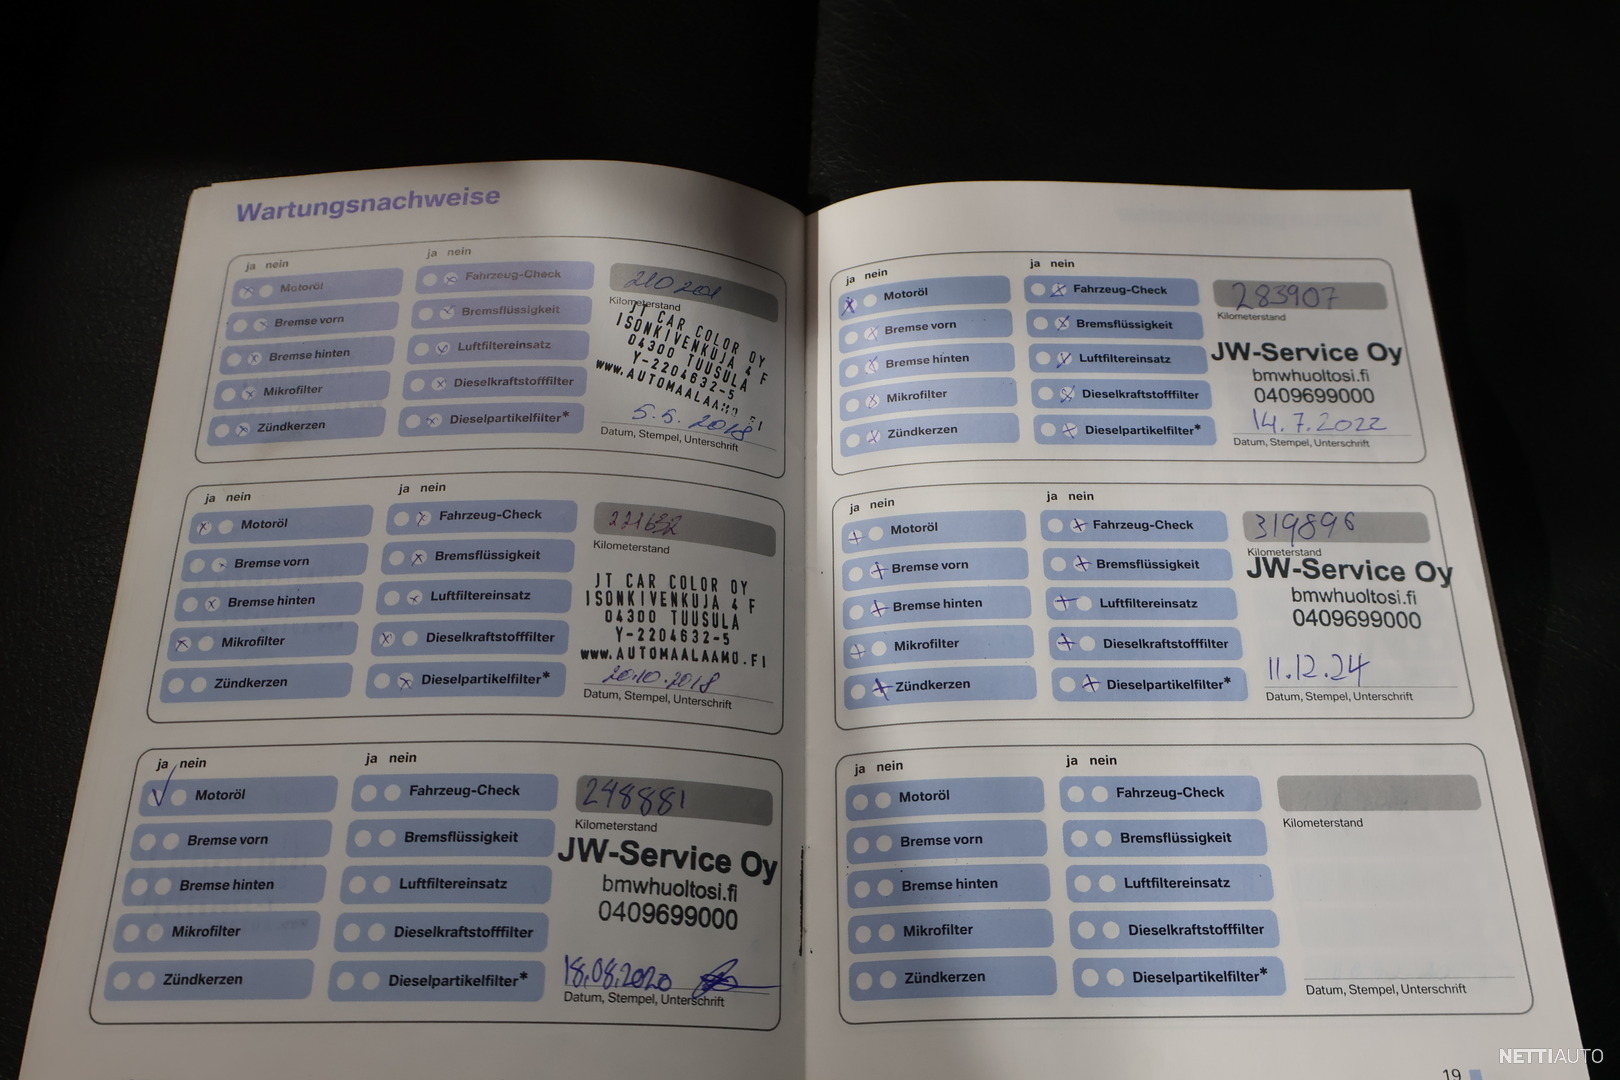 Wartungsnachweise
ja nein
ja nein
Motoröl
Fahrzeug-Check
Bremse vorn
Bremsflüssigkeit
Bremse hinten
Luftfiltereinsatz
Mikrofilter
Dieselkraftstofffilter
Zündkerzen
Dieselpartikelfilter*
210201
Kilometerstand
JT CAR COLOR OY
ISONKIVENKUJA 4 F
04300 TUUSULA
Y-2204632-5
www.AUTOMAALAAMO.FI
5.5.2018
Datum, Stempel, Unterschrift
ja nein
ja nein
Motoröl
Fahrzeug-Check
Bremse vorn
Bremsflüssigkeit
Bremse hinten
Luftfiltereinsatz
Mikrofilter
Dieselkraftstofffilter
Zündkerzen
Dieselpartikelfilter*
Kilometerstand
JT CAR COLOR OY
ISONKIVENKUJA 4 F
04300 TUUSULA
Y-2204632-5
www.AUTOMAALAAMO.FI
20.10.2018
Datum, Stempel, Unterschrift
ja nein
ja nein
Motoröl
Fahrzeug-Check
Bremse vorn
Bremsflüssigkeit
Bremse hinten
Luftfiltereinsatz
Mikrofilter
Dieselkraftstofffilter
Zündkerzen
Dieselpartikelfilter*
248881
Kilometerstand
JW-Service Oy
bmwhuoltosi.fi
0409699000
18.08.2020
Datum, Stempel, Unterschrift
ja nein
ja nein
Motoröl
Fahrzeug-Check
Bremse vorn
Bremsflüssigkeit
Bremse hinten
Luftfiltereinsatz
Mikrofilter
Dieselkraftstofffilter
Zündkerzen
Dieselpartikelfilter*
283907
Kilometerstand
JW-Service Oy
bmwhuoltosi.fi
0409699000
14.7.2022
Datum, Stempel, Unterschrift
ja nein
ja nein
Motoröl
Fahrzeug-Check
Bremse vorn
Bremsflüssigkeit
Bremse hinten
Luftfiltereinsatz
Mikrofilter
Dieselkraftstofffilter
Zündkerzen
Dieselpartikelfilter*
319896
Kilometerstand
JW-Service Oy
bmwhuoltosi.fi
0409699000
11.12.24
Datum, Stempel, Unterschrift
ja nein
ja nein
Motoröl
Fahrzeug-Check
Bremse vorn
Bremsflüssigkeit
Bremse hinten
Luftfiltereinsatz
Mikrofilter
Dieselkraftstofffilter
Zündkerzen
Dieselpartikelfilter*
Kilometerstand
Datum, Stempel, Unterschrift
19
NETTIAUTO